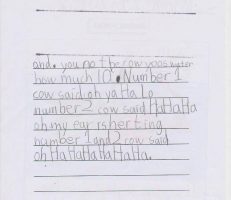 and. you no the cow yoos water
how much 10. Number 1
cow said oh ya Ha Lo
number 2 cow said HaHaHa
oh my ear is herting
number 1 and 2 cow said
oh HaHaHaHaHaHa.